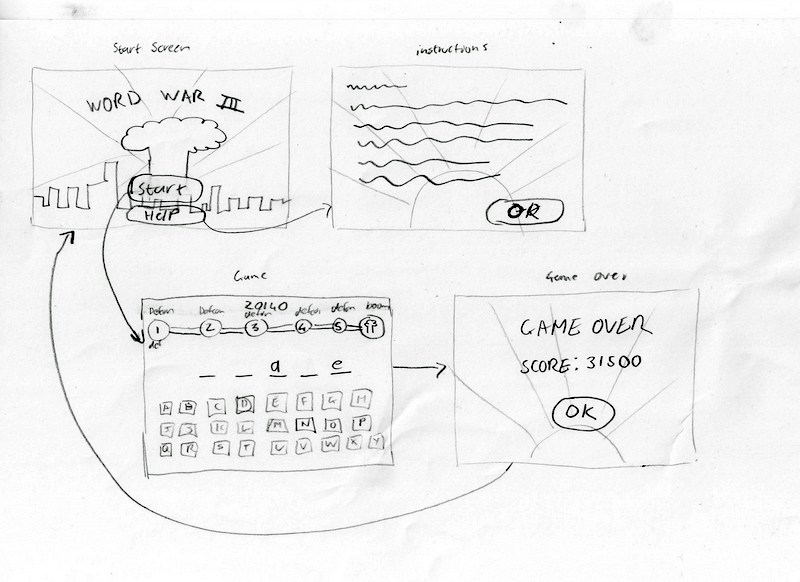 Start Screen
instructions
WORD WAR III
Start
HElP
OK
Game
Game over
20140
Defcon Defcon defcon defcon defcon boom
1 2 3 4 5
def
_ _ a _ e
A B C D E F G H
I J K L M N O P
Q R S T U V W X Y
GAME OVER
SCORE: 31500
OK